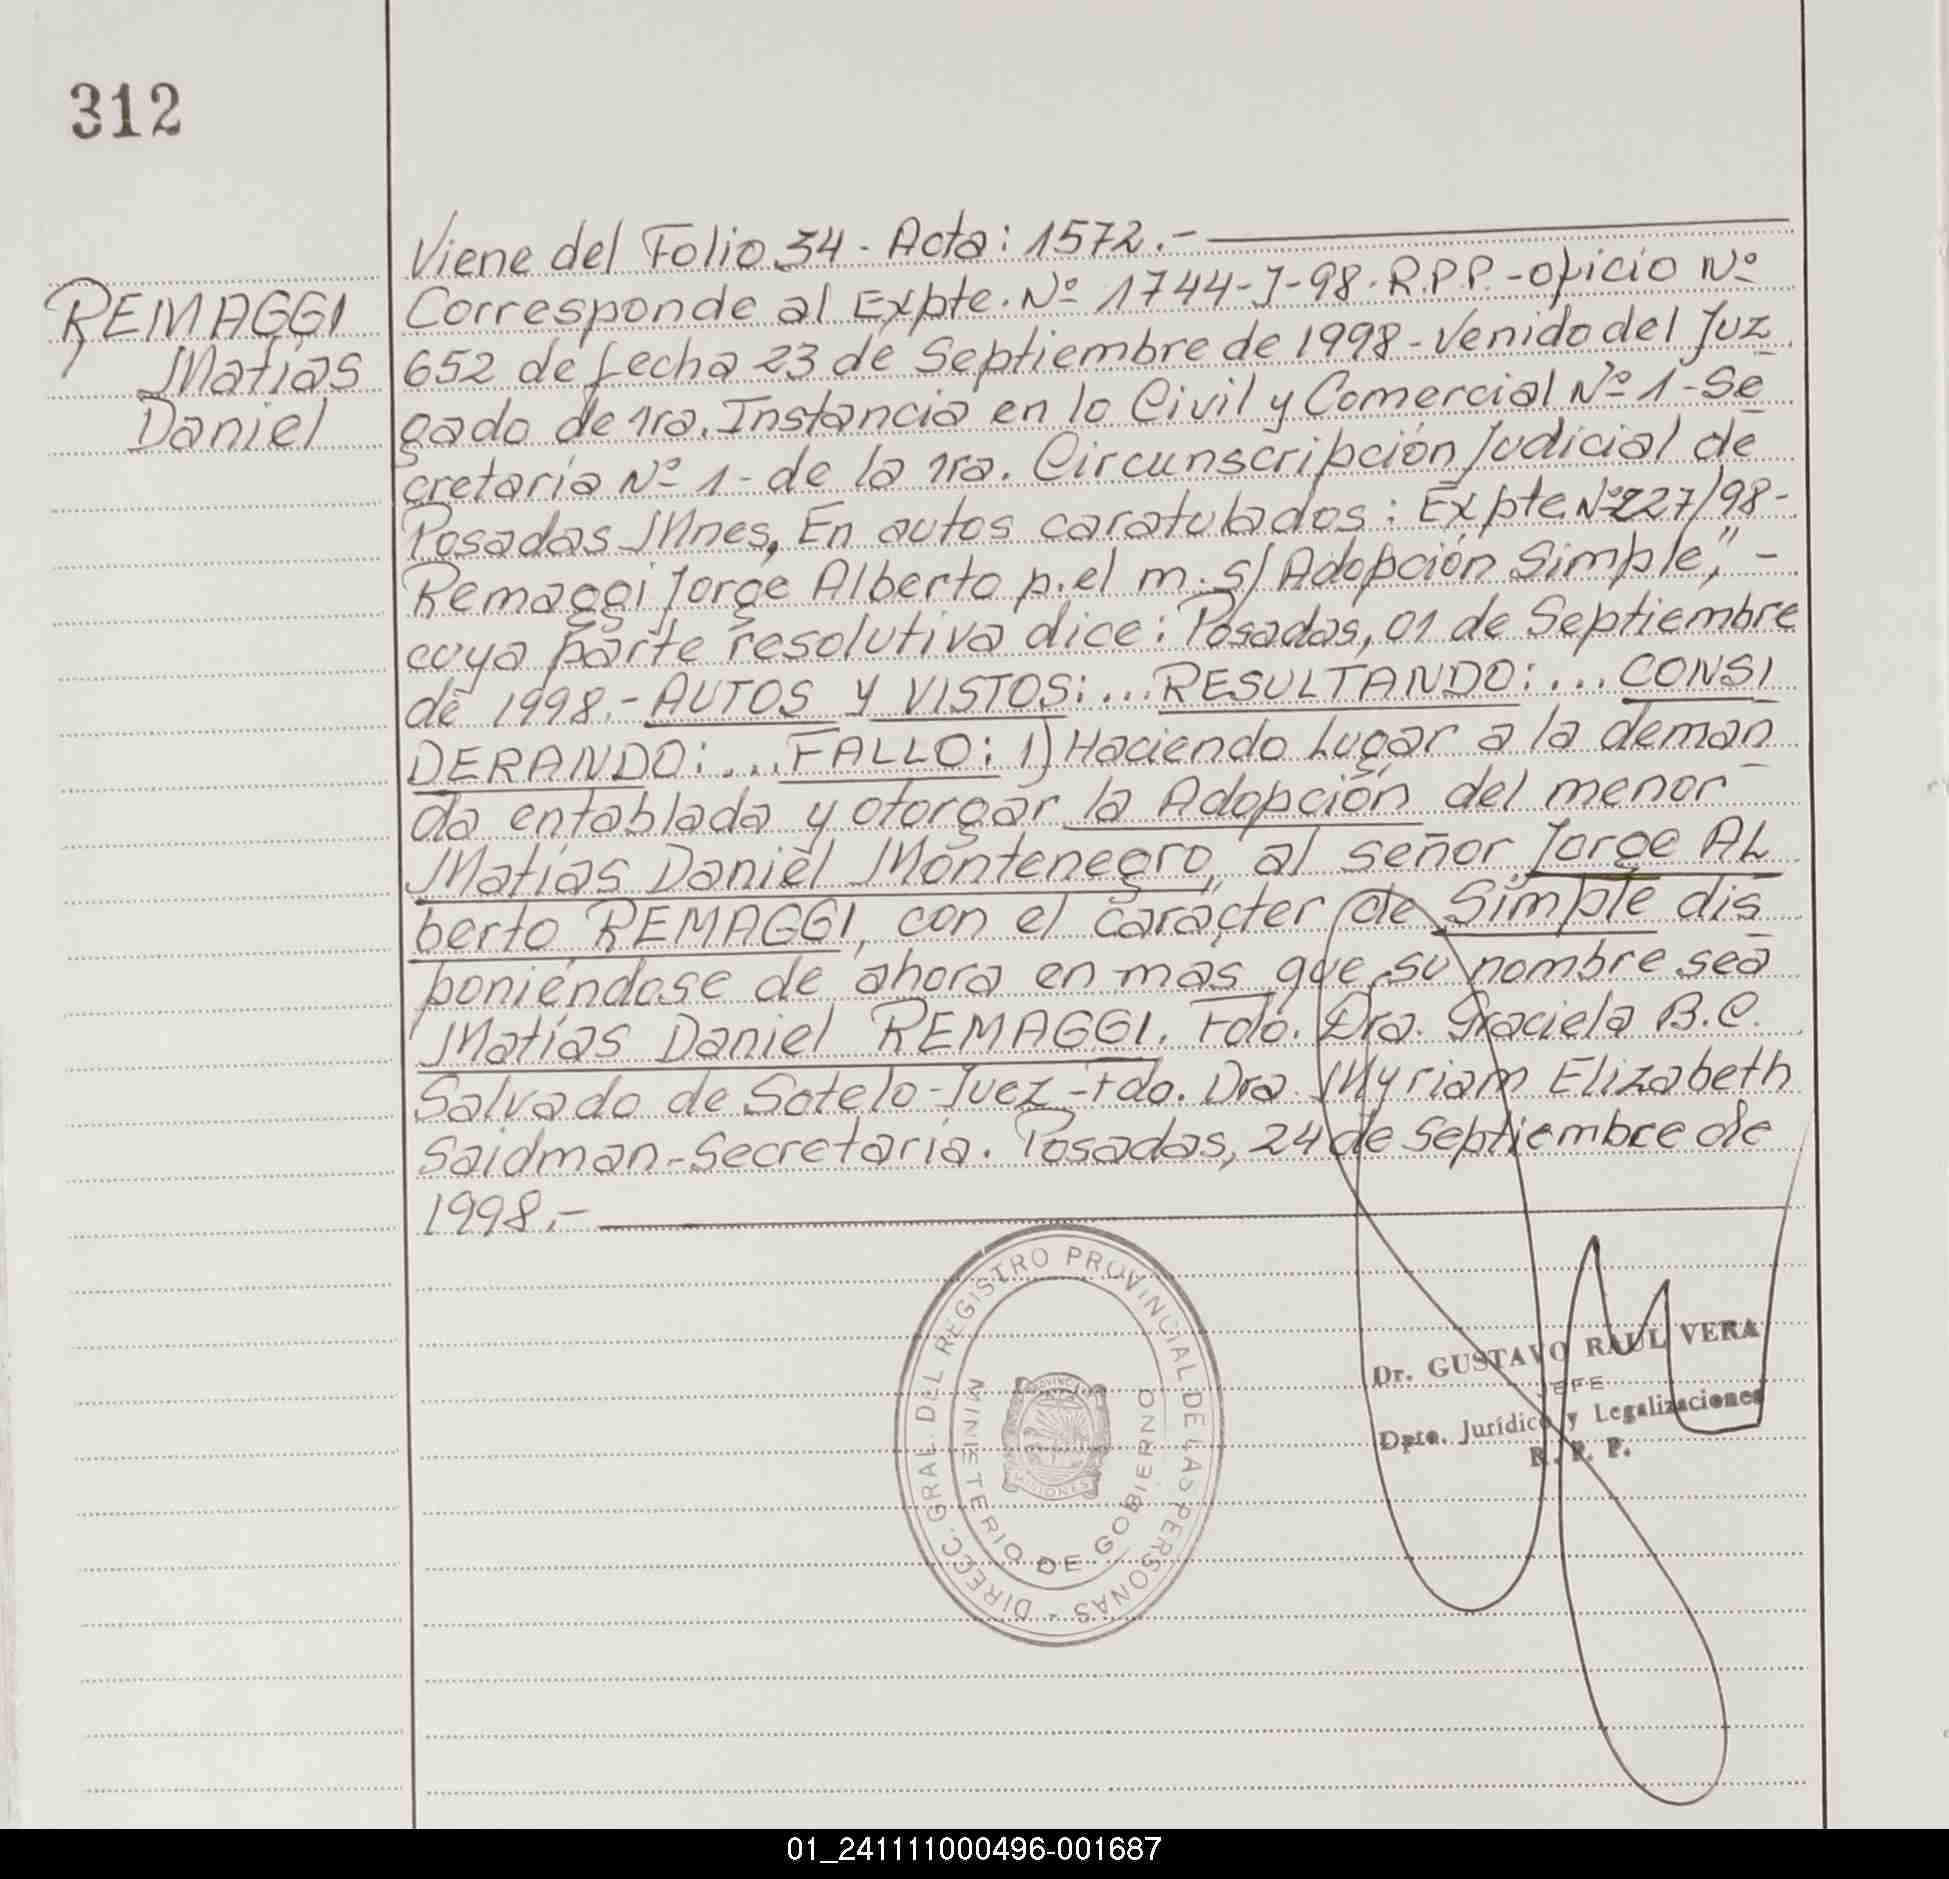 312
REMAGGI
Matías
Daniel
Viene del Folio 34 - Acta: 1572.-
Corresponde al Expte. Nº 1744-J-98. R.P.P. - oficio Nº
652 de fecha 23 de Septiembre de 1998 - Venido del Juz
gado de 1ra. Instancia en lo Civil y Comercial Nº 1 - Se
cretaría Nº 1 - de la 1ra. Circunscripción Judicial de
Posadas Mnes, En autos caratulados: Expte Nº 227/98 -
Remaggi Jorge Alberto p. el m. s/ Adopción Simple," -
cuya parte resolutiva dice: Posadas, 01 de Septiembre
de 1998.- AUTOS Y VISTOS:... RESULTANDO:... CONSI
DERANDO:... FALLO: 1) Haciendo Lugar a la deman
da entablada y otorgar la Adopción del menor
Matías Daniel Montenegro, al señor Jorge AL
berto REMAGGI, con el carácter de Simple dis
poniéndose de ahora en mas que su nombre sea
Matías Daniel REMAGGI. Fdo. Dra. Graciela B.C.
Salvado de Sotelo - Juez - Fdo. Dra. Myriam Elizabeth
Saidman - Secretaria. Posadas, 24 de Septiembre de
1998.-
DIRECC. GRAL. DEL REGISTRO PROVINCIAL DE LAS PERSONAS -
MINISTERIO DE GOBIERNO
PROVINCIA
MISIONES
Dr. GUSTAVO RAUL VERA
JEFE
Dpto. Jurídico y Legalizaciones
R. P. P.
01_241111000496-001687